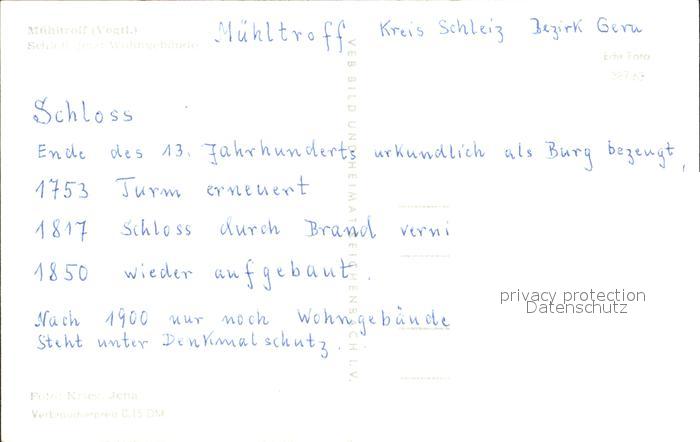 Mühltroff (Vogtl.)
Schloß, jetzt Wohngebäude
Mühltroff Kreis Schleiz Bezirk Gera
Echt Foto
Schloss
Ende des 13. Jahrhunderts urkundlich als Burg bezeugt,
1753 Turm erneuert
1817 Schloss durch Brand verni
1850 wieder aufgebaut.
Nach 1900 nur noch Wohngebäude
Steht unter Denkmalschutz.
VEB BILD UND HEIMAT REICHENBACH I. V.
privacy protection
Datenschutz
Foto: Krieg, Jena
Verbraucherpreis 0,15 DM